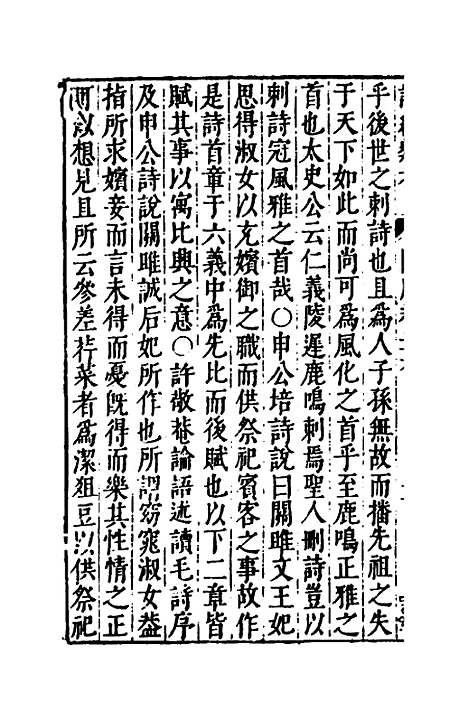 乎後世之刺詩也且爲人子孫無故而播先祖之失
于天下如此而尚可爲風化之首乎至鹿鳴正雅之
首也太史公云仁義陵遲鹿鳴刺焉聖人刪詩豈以
刺詩冠風雅之首哉○申公培詩說曰關雎文王妃
思得淑女以充嬪御之職而供祭祀賓客之事故作
是詩首章于六義中爲先比而後賦也以下二章皆
賦其事以寓比興之意○許敬菴論語述讀毛詩序
及申公詩說關雎誠后妃所作也所謂窈窕淑女益
指所求嬪妾而言未得而憂旣得而樂其性情之正
可以想見且所云參差荇菜者爲潔俎豆以供祭祀